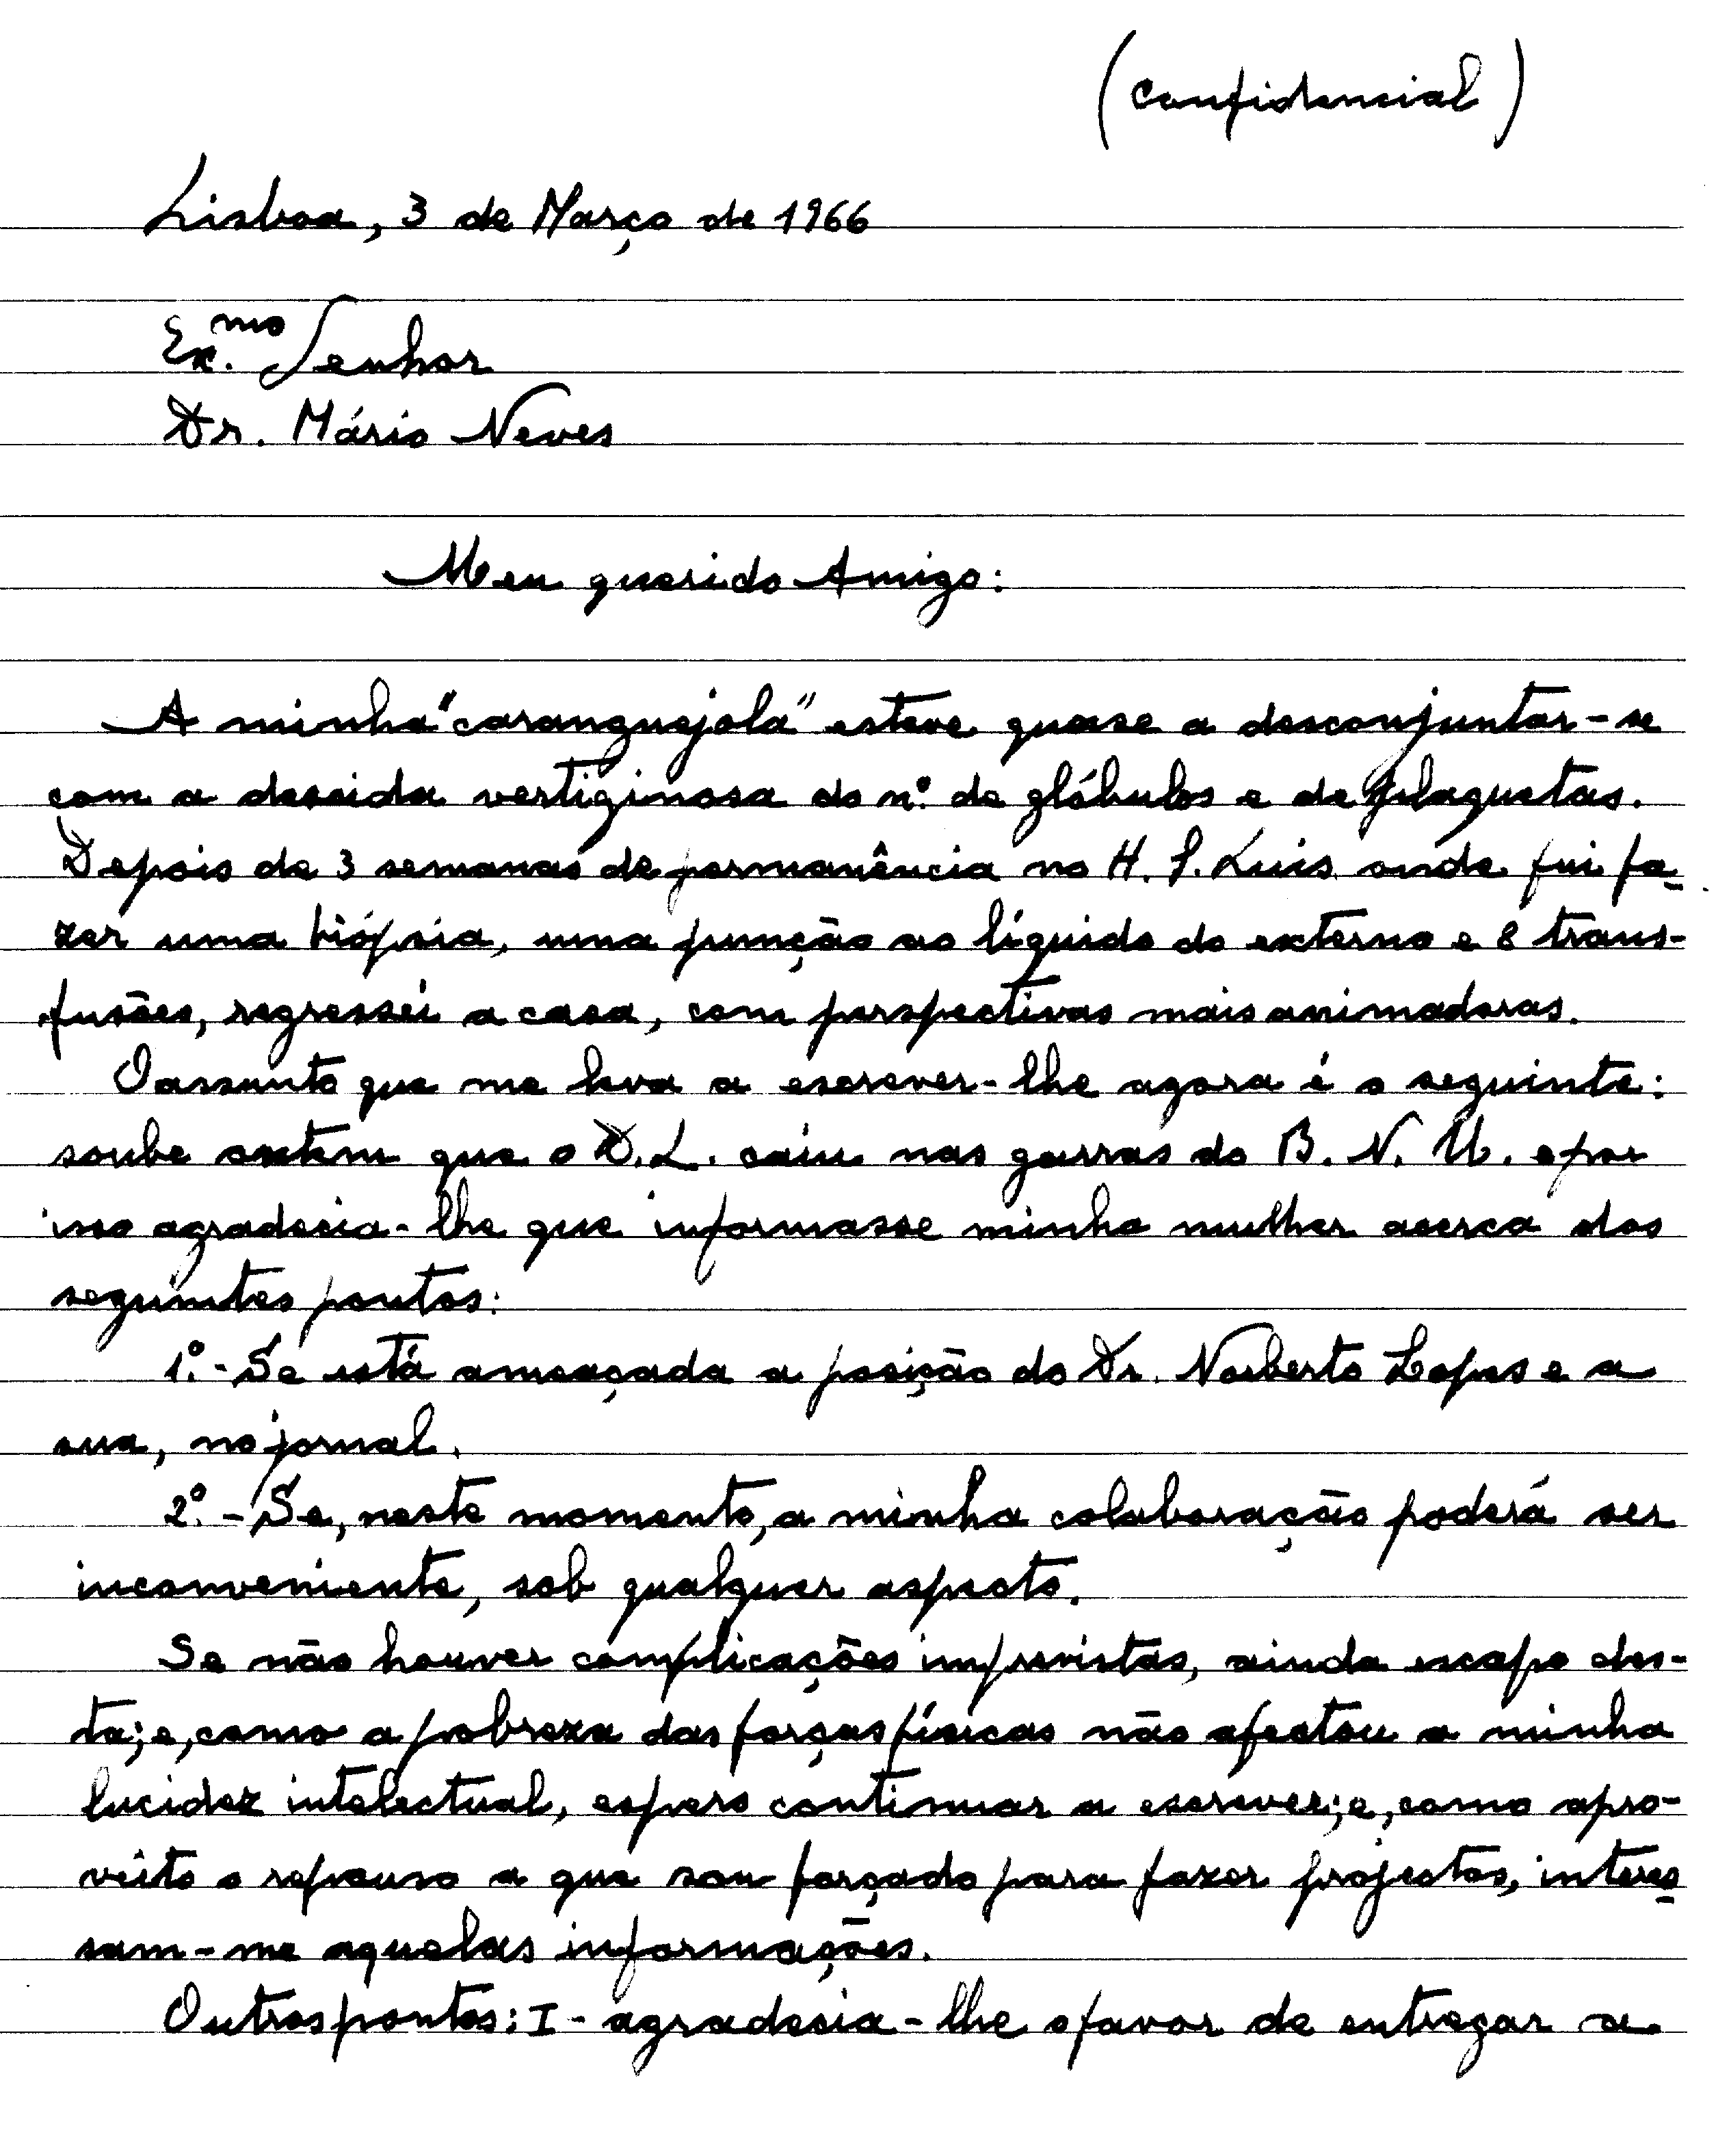 (confidencial)
Lisboa, 3 de Março de 1966
Ex.mo Senhor
Dr. Mário Neves
Meu querido Amigo:
A minha "caranguejola" esteve quase a desconjuntar-se
com a descida vertiginosa do nº. de glóbulos e de plaquetas.
Depois de 3 semanas de permanência no H. S. Luis onde fui fa-
zer uma biópsia, uma punção ao líquido do externo e 8 trans-
fusões, regressei a casa, com perspectivas mais animadoras.
O assunto que me leva a escrever-lhe agora é o seguinte:
soube ontem que o D.L. caiu nas garras do B. N. U. e por
isso agradecia-lhe que informasse minha mulher acerca dos
seguintes pontos:
1º.- Se está ameaçada a posição do Dr. Norberto Lopes e a
sua, no jornal.
2º.- Se, neste momento, a minha colaboração poderá ser
inconveniente, sob qualquer aspecto.
Se não houver complicações imprevistas, ainda escapo des-
ta; e, como a pobreza das forças físicas não afectou a minha
lucidez intelectual, espero continuar a escrever; e, como apro-
veito o repouso a que sou forçado para fazer projectos, interes
sam-me aquelas informações.
Outros pontos: I - agradecia-lhe o favor de entregar a